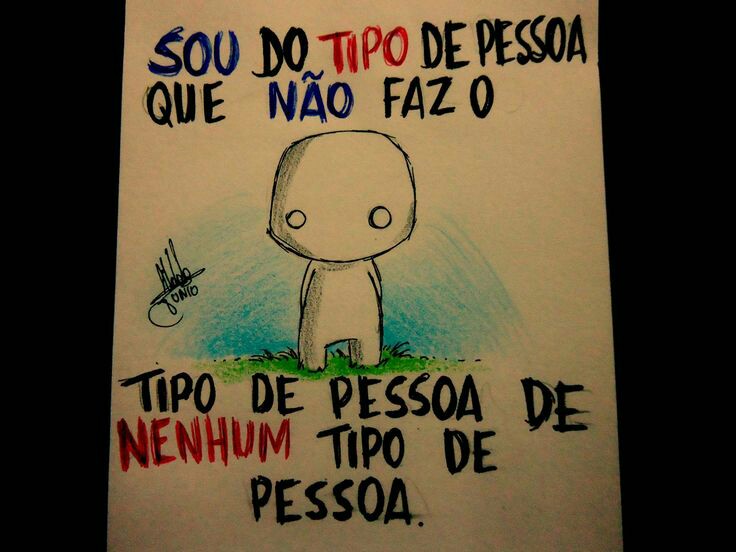 SOU DO TIPO DE PESSOA
QUE NÃO FAZ O
JUNIO
TIPO DE PESSOA DE
NENHUM TIPO DE
PESSOA.